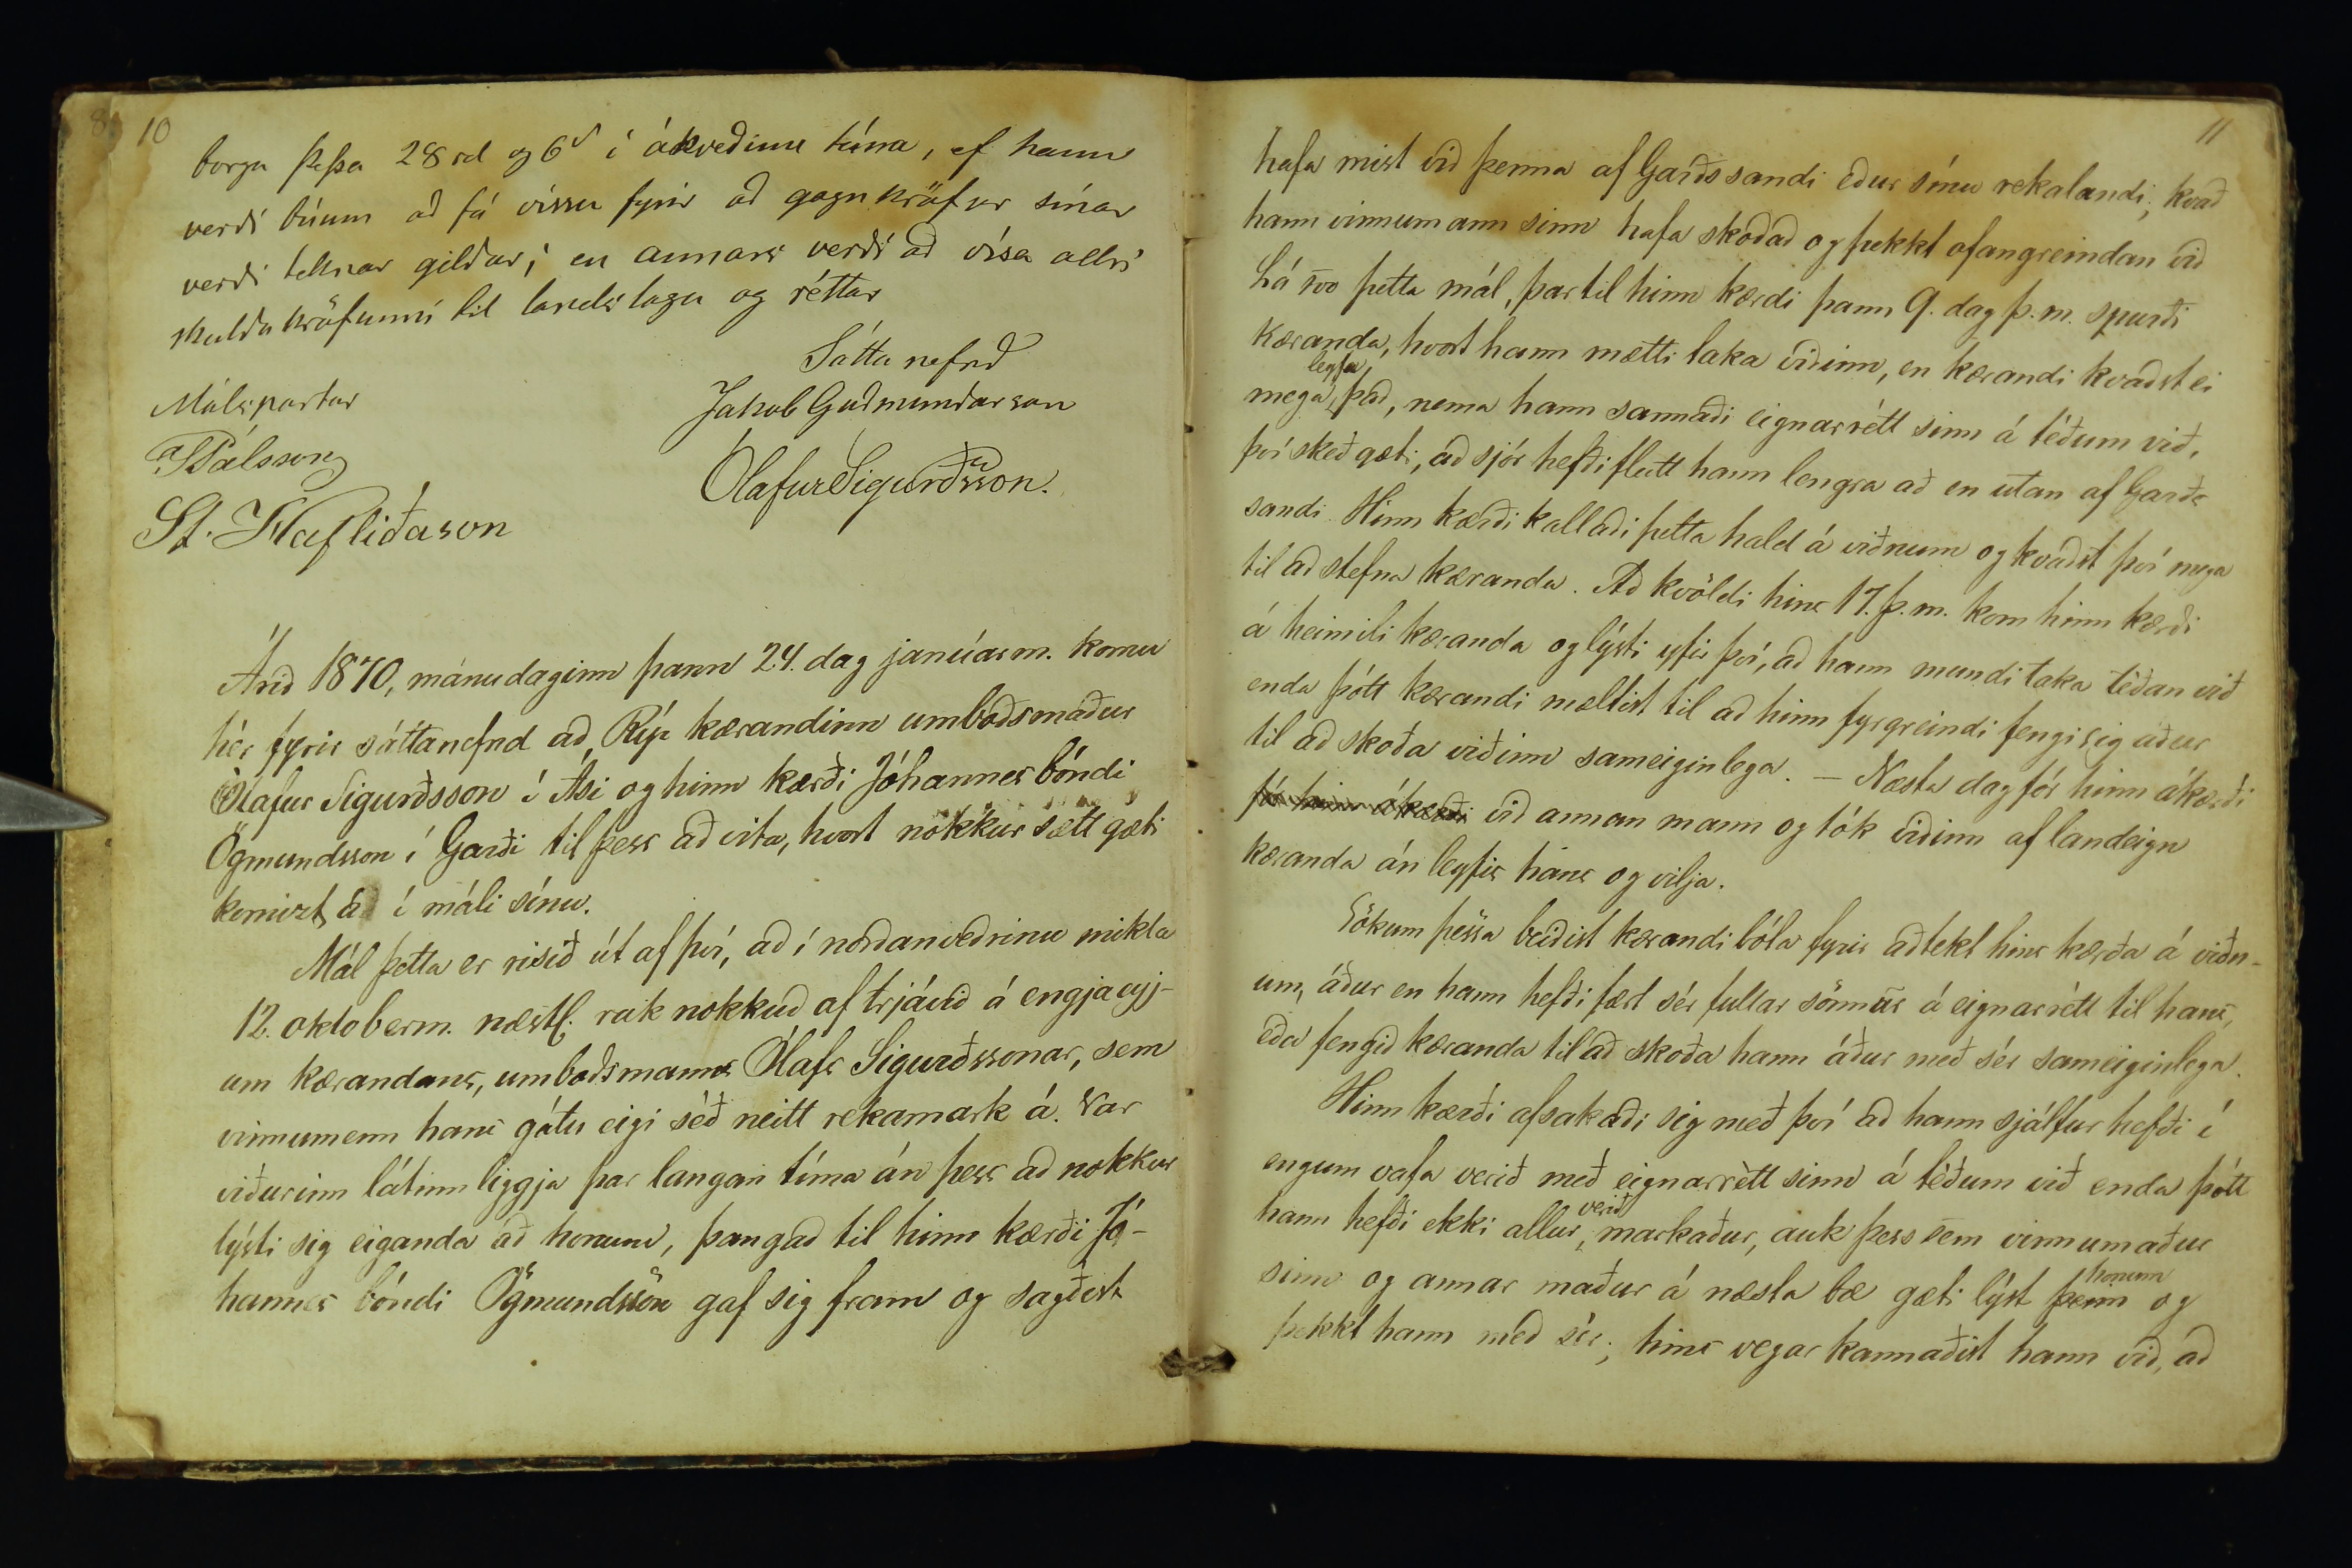 10
borga þessa 28 rd og 6 s í ákveðinn tíma, ef hann
verði búinn að fá vissu fyrir að gagnkröfur sínar
verði teknar gildar; en annars verði að vísa allri
skuldakröfunni til landslaga og réttar
Sáttanefnd
Málspartar
Jakob Guðmundarson
Pálsson
Ólafur Sigurðsson.
St. Hafliðason
Árið 1870, mánudaginn þann 24. dag janúarm. komu
hér fyrir sáttanefnd að Ríp kærandinn umboðsmaður
Ólafur Sigurðsson í Ási og hinn kærði Jóhannes bóndi
Ögmundsson í Garði til þess að vita, hvort nokkur sætt gæti
komizt á í máli sínu.
Mál þetta er risið út af því, að í norðanveðrinu mikla
12. oktoberm. næstl. rak nokkuð af trjávið á engjaeyj-
um kærandans, umboðsmanns Ólafs Sigurðssonar, sem
vinnumenn hans gátu eigi séð neitt rekamark á. Var
viðurinn látinn liggja þar langan tíma án þess að nokkur
lýsti sig eiganda að honum, þangað til hinn kærði Jó-
hannes bóndi Ögmundsson gaf sig fram og sagðist
11
hafa mist við þenna af Garðssandi eður sínu rekalandi; kvað
hann vinnumann sinn hafa skoðað og þekkt ofangreindan við
Lá svo þetta mál, þar til hinn kærdi þann 9. dag þ. m. spurði
kæranda, hvort hann mætti taka viðinn, en kærandi kvaðst ei
mega leyfa það, nema hann sannaði eignarrétt sinn á téðum við,
því skeð gæti, að sjór hefði flutt hann lengra að en utan af Garðs
sandi. Hinn kærði kallaði þetta hald á viðnum og kvaðst því mega
til að stefna kæranda. Að kvöldi hins 17. þ. m. kom hinn kærði
á heimili kæranda og lýsti yfir því, að hann mundi taka téðan við
enda þótt kærandi mæltist til að hinn fyrgreindi fengi sig aður
til að skoða viðinn sameiginlega. — Næsta dag fór hinn ákærði
fór hinn ákærði við annan mann og tók viðinn af landeign
kæranda án leyfis hans og vilja.
Sökum þessa beiðist kærandi bóta fyrir aðtekt hins kærða á viðn-
um, áður en hann hefði fært sér fullar sönnur á eignarrétt til hans,
eða fengið kæranda til að skoða hann áður með sér sameiginlega.
Hinn kærði afsakaði sig með því að hann sjálfur hefði í
engum vafa verið með eignarrétt sinn á téðum við enda þótt
hann hefði ekki allur verið markaður, auk þess sem vinnumaður
sinn og annar maður á næsta bæ gæti lýst þeim honum og
þekkt hann með sér; hins vegar kannaðist hann við, að